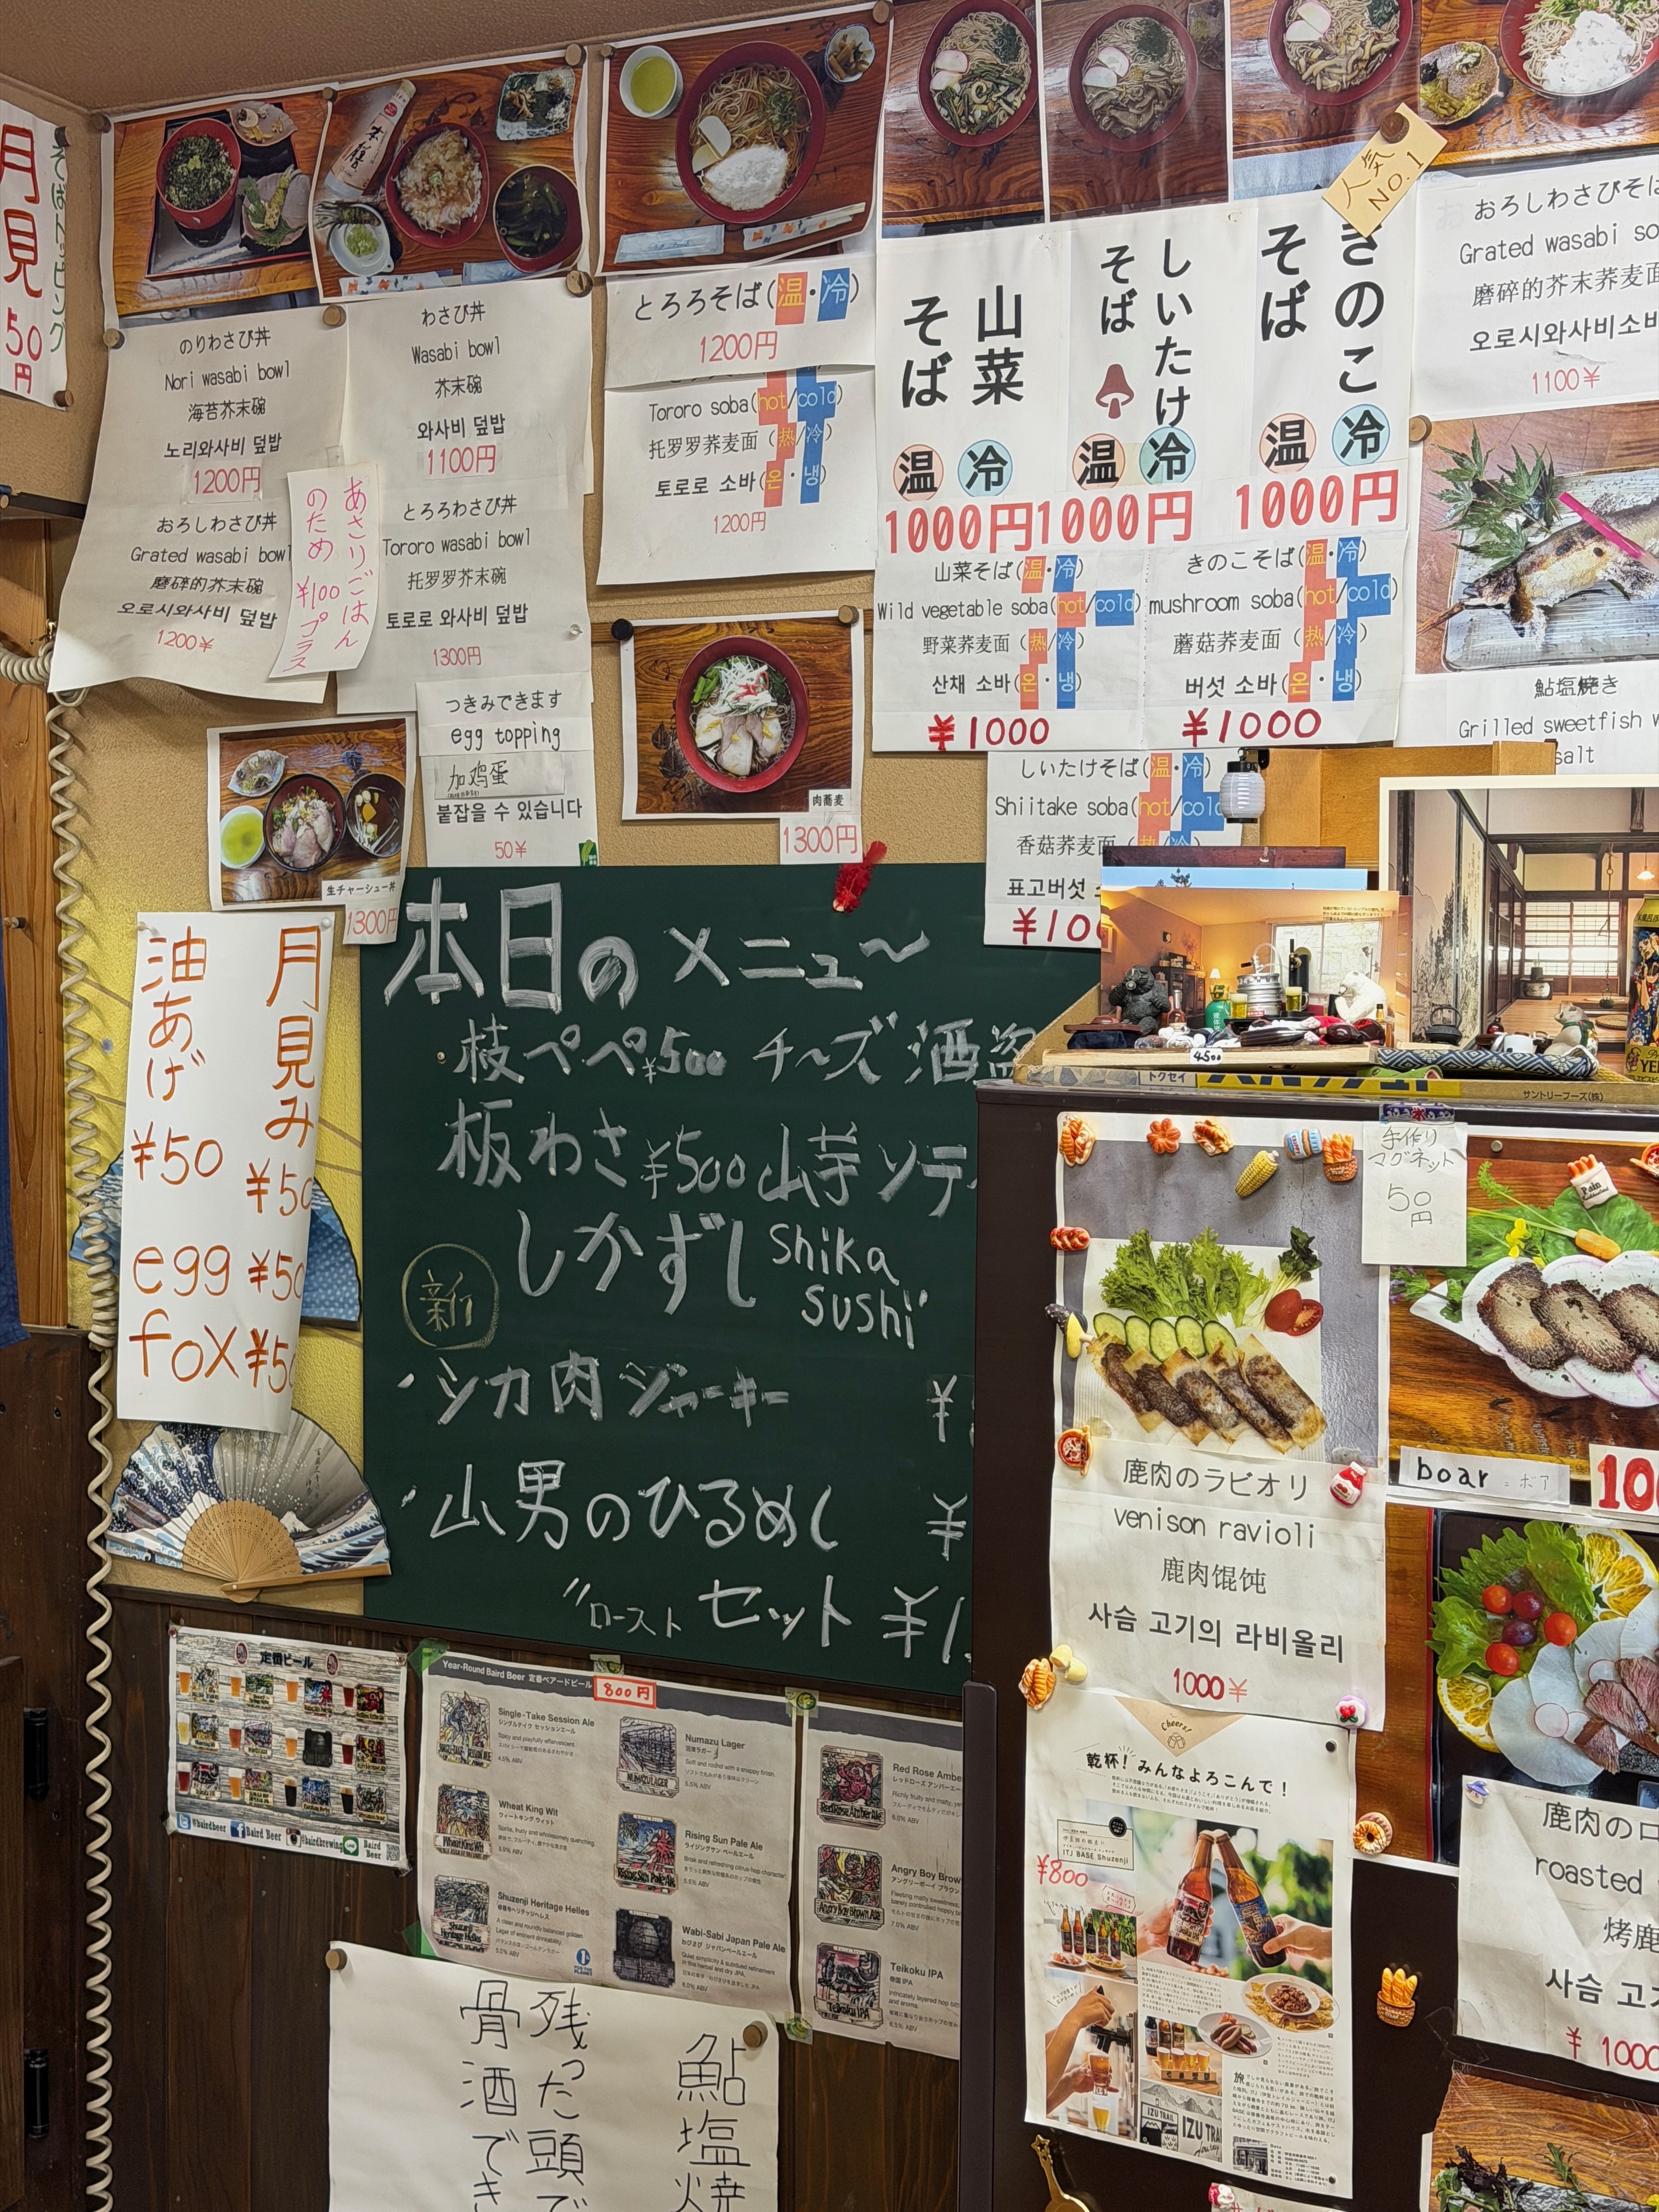 そばトッピング
月見
50円
のりわさび丼
Nori wasabi bowl
海苔芥末碗
노리와사비 덮밥
1200円
おろしわさび丼
Grated wasabi bowl
磨碎的芥末碗
오로시와사비 덮밥
1200¥
わさび丼
Wasabi bowl
芥末碗
와사비 덮밥
1100円
とろろわさび丼
Tororo wasabi bowl
托罗罗芥末碗
토로로 와사비 덮밥
1300円
あさりごはん
のため ¥100プラス
とろろそば(温・冷)
1200円
Tororo soba(hot/cold)
托罗罗荞麦面（热/冷）
토로로 소바(온・냉)
1200円
山菜
そば
温 冷
1000円
しいたけ
そば
温 冷
1000円
きのこ
そば
温 冷
1000円
人気
NO.1
山菜そば(温・冷)
Wild vegetable soba(hot/cold)
野菜荞麦面（热/冷）
산채 소바(온・냉)
¥1000
きのこそば(温・冷)
mushroom soba(hot/cold)
蘑菇荞麦面（热/冷）
버섯 소바(온・냉)
¥1000
しいたけそば(温・冷)
Shiitake soba(hot/cold
香菇荞麦面
표고버섯
¥10
おろしわさびそば
Grated wasabi so
磨碎的芥末荞麦面
오로시와사비소바
1100¥
鮎塩焼き
Grilled sweetfish w
salt
つきみできます
egg topping
加鸡蛋
붙잡을 수 있습니다
50¥
肉蕎麦
1300円
生チャーシュー丼
1300円
月見み ¥50
油あげ ¥50
egg ¥50
fox ¥50
本日のメニュ〜
枝ペペ¥500 チーズ酒盗
板わさ¥500 山芋ソテ
新 しかずし Shika
sushi
・シカ肉ジャーキー ¥
・山男のひるめし ¥
〃ロースト セット ¥1
4500
トクセイ
サントリーフーズ(株)
手作り
マグネット
50円
Pain
鹿肉のラビオリ
venison ravioli
鹿肉馄饨
사슴 고기의 라비올리
1000¥
boar = ボア
100
鹿肉のロ
roasted
烤鹿
사슴 고기
¥1000
定番ビール
@bairdbeer
Baird Beer
@bairdbrewing
Baird Beer
Year-Round Baird Beer 定番ベアードビール
800円
Single-Take Session Ale
シングルテイク セッションエール
Spicy and playfully effervescent
4.5% ABV
Numazu Lager
沼津ラガー
Soft and round with a snappy finish.
5.5% ABV
Wheat King Wit
ウィートキング ウィット
Rising Sun Pale Ale
ライジングサン ペールエール
Shuzenji Heritage Helles
修善寺ヘリテッジヘレス
5.0% ABV
Wabi-Sabi Japan Pale Ale
わびさび ジャパンペールエール
6.0% ABV
Red Rose Amber
レッドローズ アンバーエー
Angry Boy Brown
アングリーボーイ ブラウン
7.0% ABV
Teikoku IPA
帝国 IPA
6.5% ABV
Cheers!
乾杯！みんなよろこんで！
ITJ BASE Shuzenji
¥800
IZU TRAIL
鮎塩焼
残った頭で
骨酒でき